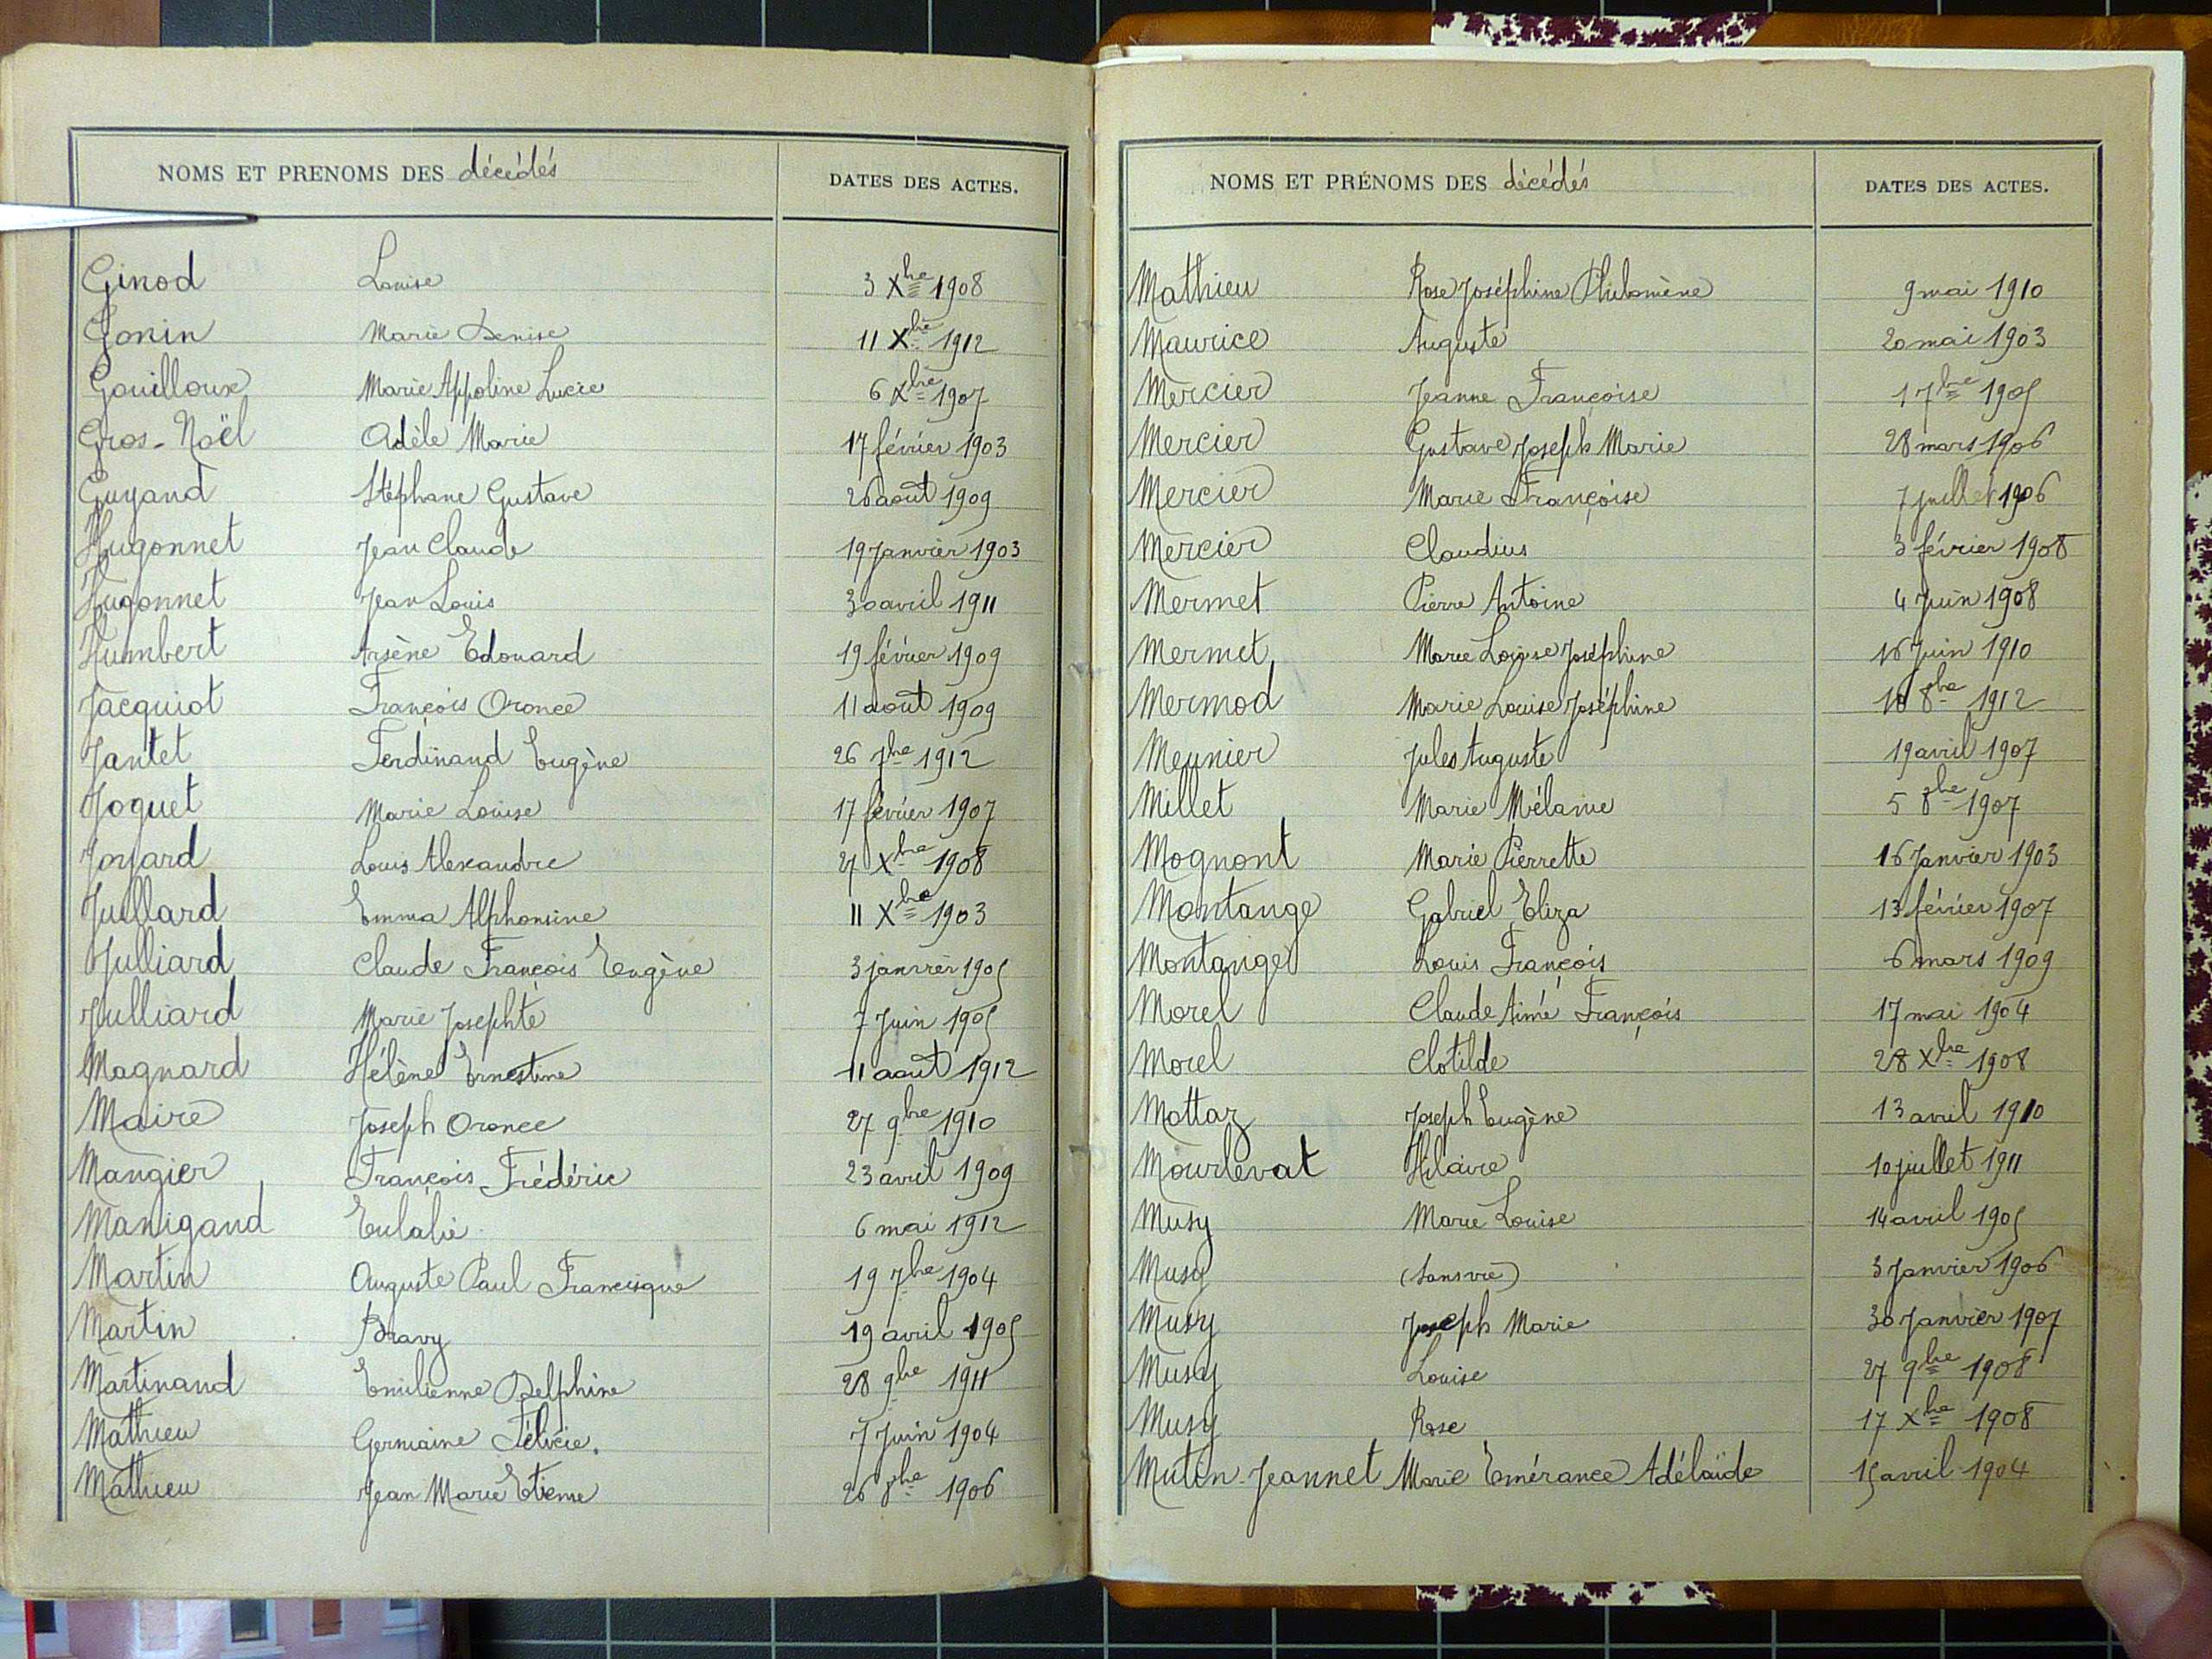 NOMS ET PRENOMS DES décédés DATES DES ACTES.
Ginod Louise 3 Xbre 1908
Gonin Marie Denise 11 Xbre 1912
Gouilloux Marie Appoline Lucie 6 Xbre 1907
Gros-Noël Adèle Marie 17 février 1903
Guyand Stéphane Gustave 26 août 1909
Hugonnet Jean Claude 19 Janvier 1903
Hugonnet Jean Louis 30 avril 1911
Humbert Arsène Edouard 19 février 1909
Jacquiot François Oronce 11 août 1909
Jantet Ferdinand Eugène 26 7bre 1912
Joquet Marie Louise 17 février 1907
Joyard Louis Alexandre 27 Xbre 1908
Juillard Emma Alphonsine 11 Xbre 1903
Julliard Claude François Eugène 3 janvier 1905
Julliard Marie Josephte 7 Juin 1905
Magnard Hélène Ernestine 11 août 1912
Maire Joseph Oronce 27 9bre 1910
Mangier François Frédéric 23 avril 1909
Manigand Eulalie 6 mai 1912
Martin Auguste Paul Francisque 19 7bre 1904
Martin Bravy 19 avril 1905
Martinand Emilienne Delphine 28 9bre 1911
Mathieu Germaine Félicie. 7 Juin 1904
Mathieu Jean Marie Etienne 26 8bre 1906
NOMS ET PRÉNOMS DES décédés DATES DES ACTES.
Mathieu Rose Joséphine Philomène 9 mai 1910
Maurice Auguste 20 mai 1903
Mercier Jeanne Françoise 1 7bre 1905
Mercier Gustave Joseph Marie 28 mars 1906
Mercier Marie Françoise 7 juillet 1906
Mercier Claudius 3 février 1908
Mermet Pierre Antoine 4 Juin 1908
Mermet Marie Louise Joséphine 16 Juin 1910
Mermod Marie Louise Joséphine 8bre 1912
Meunier Jules Auguste 19 avril 1907
Millet Marie Mélanie 5 8bre 1907
Mognont Marie Pierrette 16 Janvier 1903
Montange Gabriel Eliza 13 février 1907
Montange Louis François 6 mars 1909
Morel Claude Aimé François 17 mai 1904
Morel Clotilde 28 Xbre 1908
Mottaz Joseph Eugène 13 avril 1910
Mourlevat Hilaire 10 juillet 1911
Musy Marie Louise 14 avril 1905
Musy (sans vie) 3 Janvier 1906
Musy Joseph Marie 30 Janvier 1907
Musy Louise 27 9bre 1908
Musy Rose 17 Xbre 1908
Mutin-Jeannet Marie Emérance Adélaïde 15 avril 1904